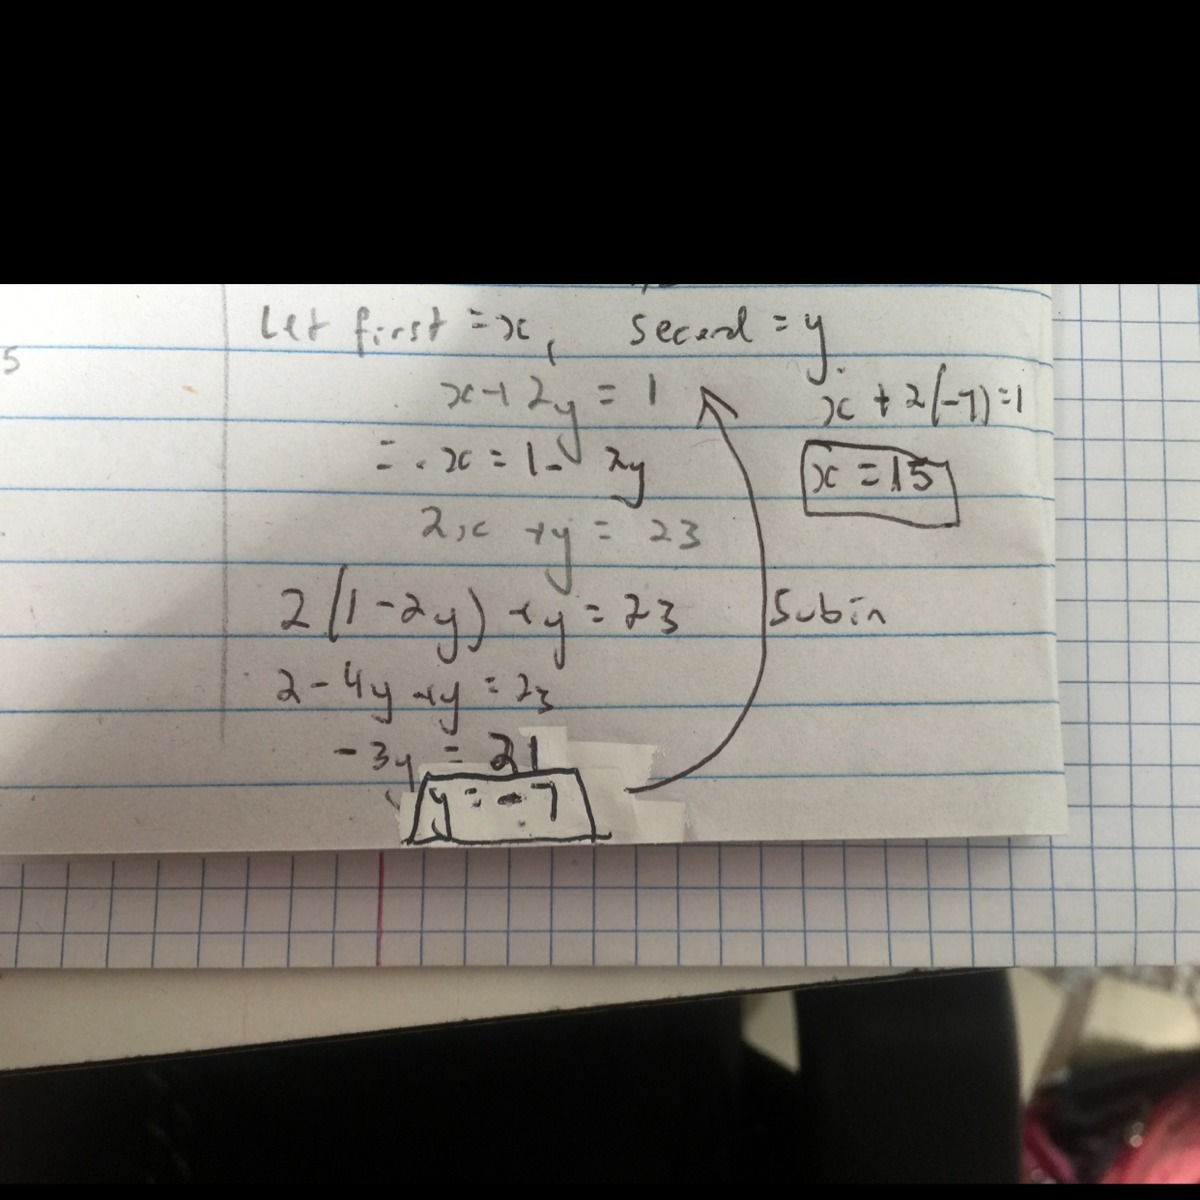 Let first = x, second = y
5
x + 2y = 1
x + 2(-7) = 1
= . x = 1 - 2y
x = 15
2x + y = 23
2(1 - 2y) + y = 23
Sub in
2 - 4y + y = 23
-3y = 21
y = -7